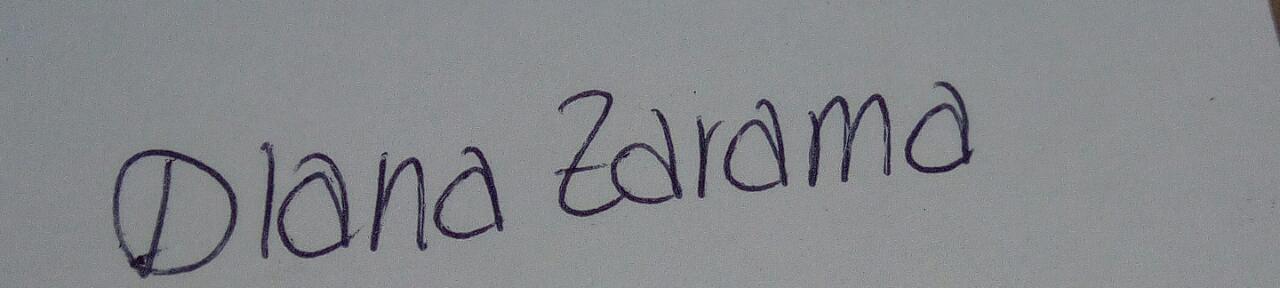 Diana Zarama